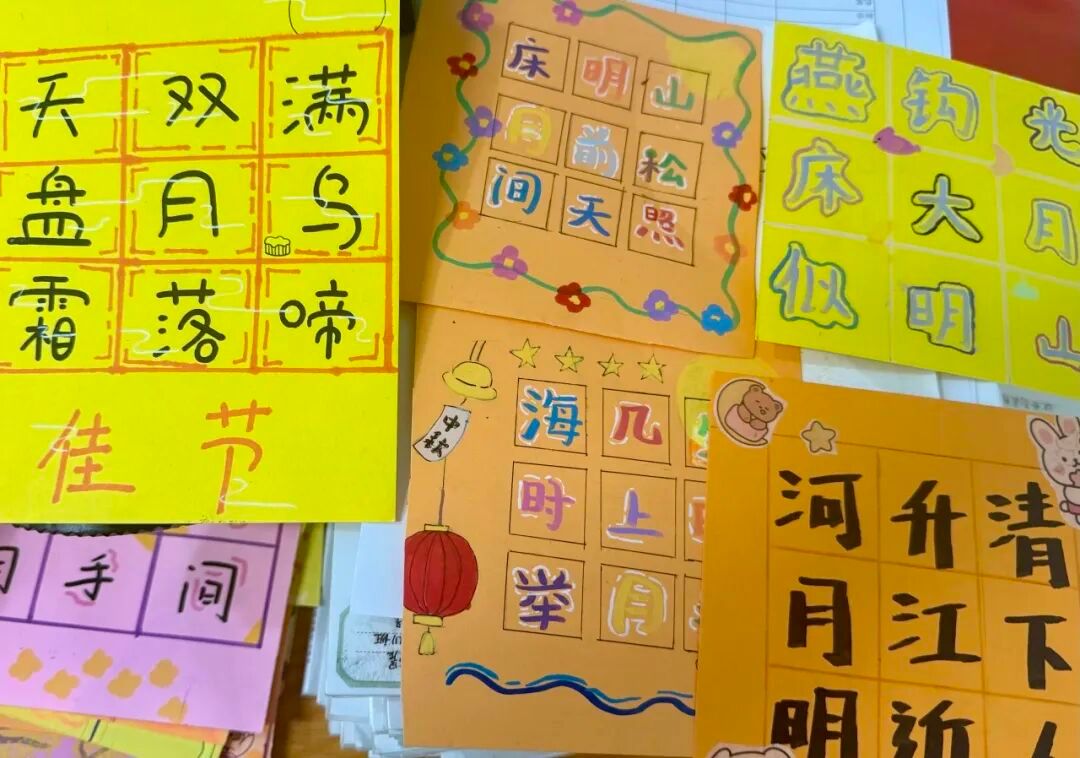 天 双 满
盘 月 乌
霜 落 啼
佳 节
手 间
床 明 山
月 前 松
间 天 照
中秋
海 几
时 上
举 月
燕 钩 光
床 大 月
似 明 山
河 升 清
月 江 下
明 近